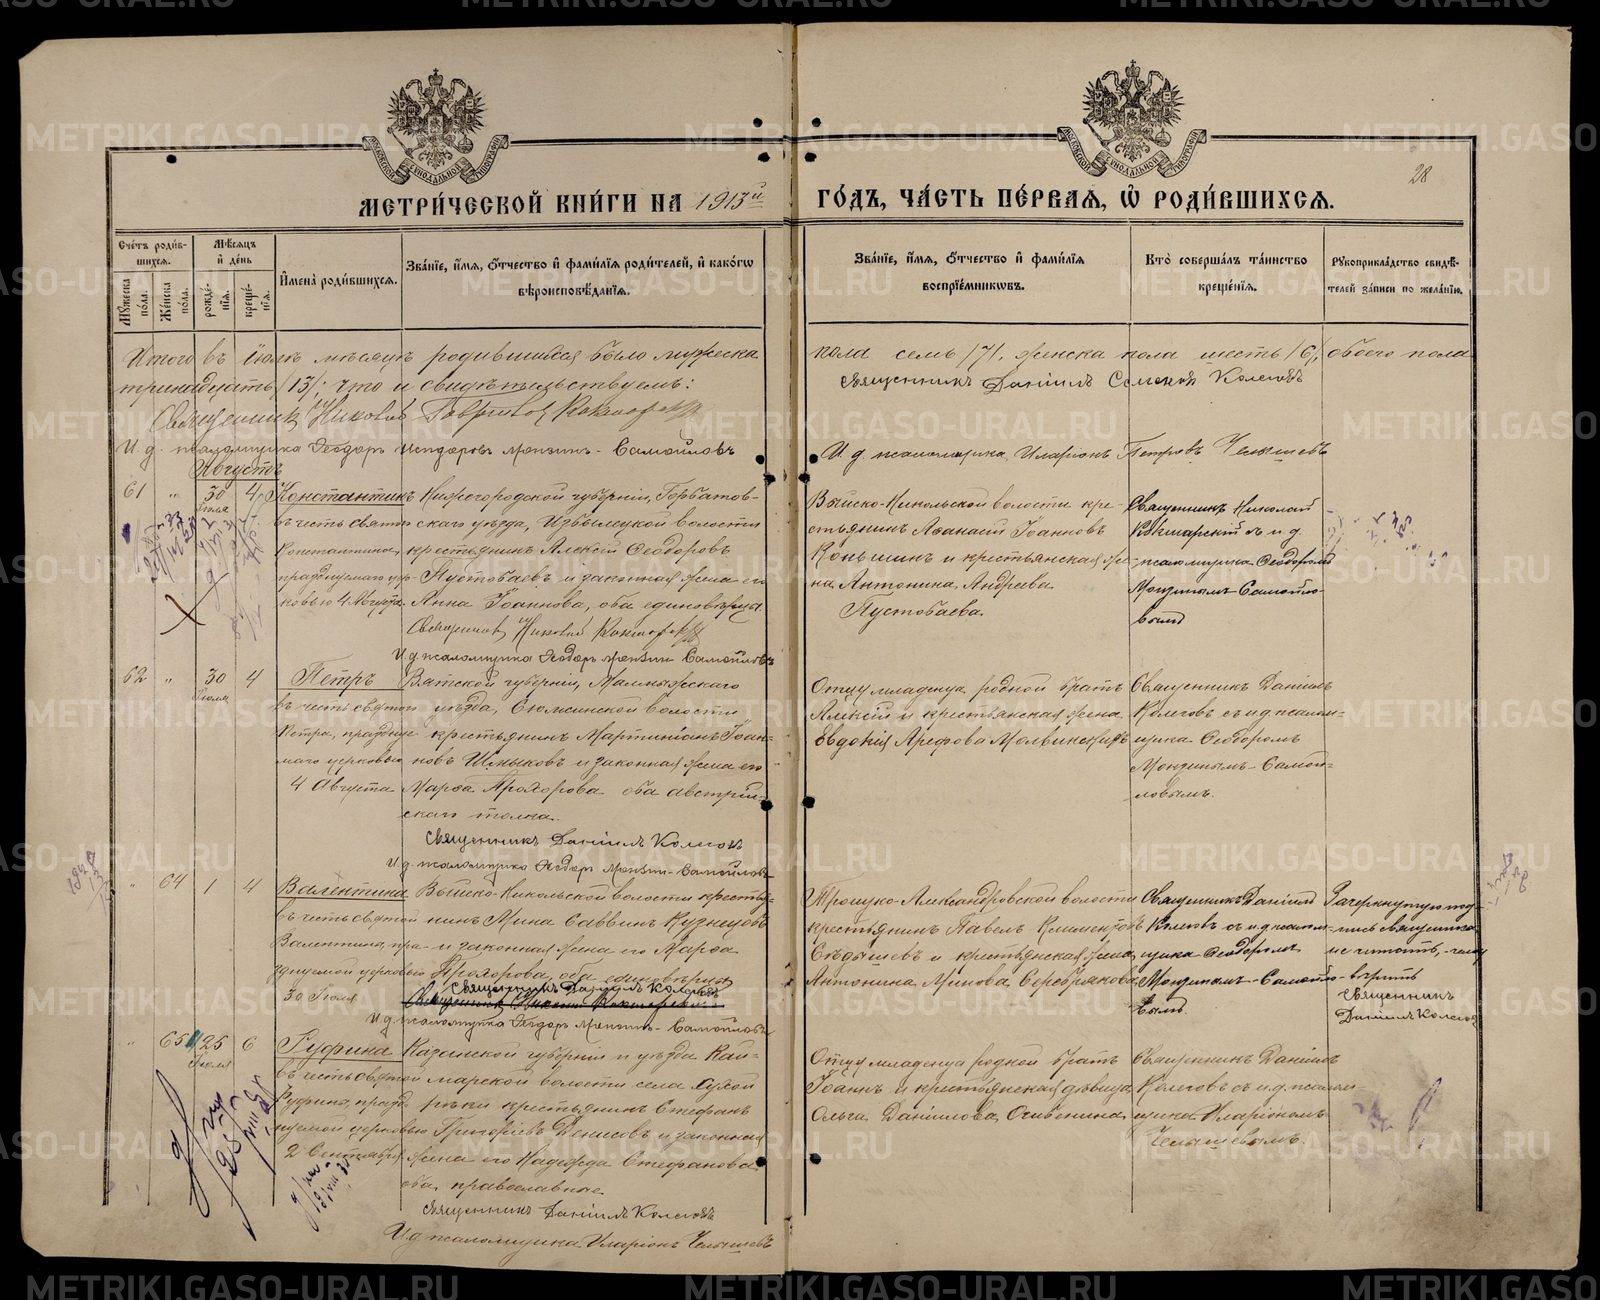 МЕТРИЧЕСКОЙ КНИГИ НА 1913й ГОДЪ, ЧАСТЬ ПЕРВАЯ, Ѡ РОДИВШИХСЯ.
28
Счетъ родив-
шихся.
Мужеска пола.
Женска пола.
Мѣсяцъ и день
рожде-
нія.
креще-
нія.
Имена родившихся.
Званіе, имя, отчество и фамилія родителей, и какогѡ
вѣроисповѣданія.
Званіе, имя, отчество и фамилія
воспріемникѡвъ.
Кто совершалъ таинство
крещенія.
Рукоприкладство свидѣ-
телей записи по желанію.
Итого въ іюлѣ мѣсяцѣ родившихся было мужеска пола семь /7/, женска пола шесть /6/, обоего пола
тринадцать /13/; что и свидѣтельствуемъ:
Священникъ Николай
Священникъ Даніилъ Колеговъ
И. д. псаломщика Ѳеодоръ Самойловъ
И. д. псаломщика Иларіонъ Петровъ Челышевъ
Августъ
61 " 30 Іюля 4
Константинъ
въ честь свят
Константина,
празднуемаго цер-
ковью 4 Августа
Нижегородской губерніи, Горбатов-
скаго уѣзда, Избылецкой волости
крестьянинъ Алексій Ѳеодоровъ
Пустобаевъ и законная жена его
Анна Іоаннова, оба единовѣрцы
Священникъ Николай
И. д. псаломщика Ѳеодоръ Самойловъ
Выйско-Никольской волости кре-
стьянинъ Аѳанасій Іоанновъ
Коньшинъ и крестьянская же-
на Антонина Андреева
Пустобаева.
Священникъ Николай
Кокшарскій съ и. д.
псаломщика Ѳеодоромъ
Самойло-
вымъ
62 " 30 Іюля 4
Петръ
въ честь святого
Петра, праздну-
маго церковью
4 Августа
Вятской губерніи, Малмыжскаго
уѣзда, Сюмсинской волости
крестьянинъ Мартиніанъ Іоан-
новъ Шмыковъ и законная жена его
Марѳа Прохорова оба австрій-
скаго толка.
Священникъ Даніилъ Колеговъ
И. д. псаломщика Ѳеодоръ Самойловъ
Отцу младенца родной братъ
Алексій и крестьянская жена
Евдокія Ареѳова
Священникъ Даніилъ
Колеговъ съ и. д. псалом-
щика Ѳеодоромъ
Самой-
ловымъ.
" 64 1 4
Валентина
въ честь святой
Валентины, пра-
зднуемой церковью
30 Іюля
Выйско-Никольской волости крестья-
нинъ Мина Саввинъ Кузнецовъ
и законная жена его Марѳа
Прохорова, оба единовѣрцы
Священникъ Даніилъ Колеговъ
И. д. псаломщика Ѳеодоръ Самойловъ
Троицко-Александровской волости
крестьянинъ Павелъ Климентовъ
Сѣдышевъ и крестьянская жена
Антонина Серебрякова
Священникъ Даніилъ
Колеговъ съ и. д. псалом-
щика Ѳеодоромъ
Самойло-
вымъ.
Зачеркнутую под-
пись священника
не читать,
вѣрить
Священникъ
Даніилъ Колеговъ
" 65 25 Іюля 6
Руфина
въ честь святой
Руфины, празд-
нуемой церковью
2 Сентября
Казанской губерніи и уѣзда Кай-
марской волости села Сухой
рѣки крестьянинъ Стефанъ
Григорьевъ Денисовъ и законная
жена его Надежда Стефанова
оба православные
Священникъ Даніилъ Колеговъ
И. д. псаломщика Иларіонъ Челышевъ
Отцу младенца родной братъ
Іоаннъ и крестьянская дѣвица
Ольга Даніилова
Священникъ Даніилъ
Колеговъ съ и. д. псалом-
щика Иларіономъ
Челышевымъ.
METRIKI.GASO-URAL.RU